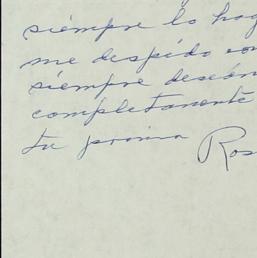 siempre lo hag
me despido con
siempre deseán
completamente
tu prima Ros